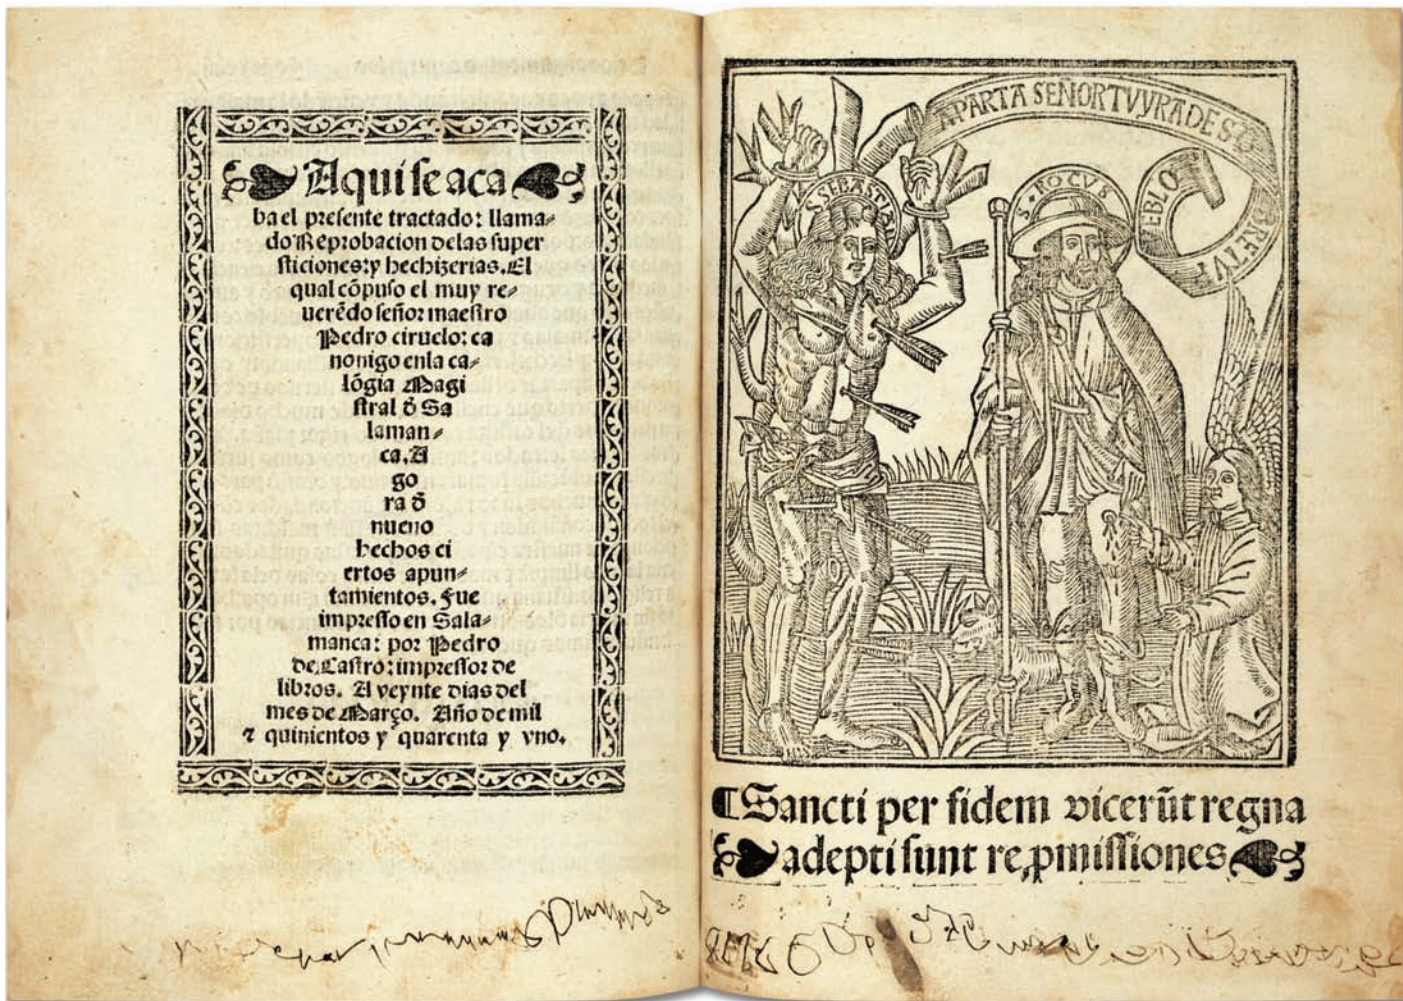 Aqui se aca
ba el presente tractado: llama-
do Reprobacion delas super
sticiones: y hechizerias. El
qual cõpuso el muy re-
uerẽdo señor maestro
Pedro ciruelo: ca
nonigo enla ca-
lõgia Magi
stral đ Sa
laman-
ca. A
go
ra đ
nueuo
hechos ci
ertos apun-
tamientos. Fue
impresso en Sala-
manca: por Pedro
de Castro: impressor de
libros. A veynte dias del
mes de Março. Año de mil
⁊ quinientos y quarenta y vno.
APARTA SEÑOR TU YRA DES
BRE TU P
UEBLO
S SEBASTIAN
S. ROCUS
¶ Sancti per fidem vicerũt regna
adepti sunt re,pmissiones